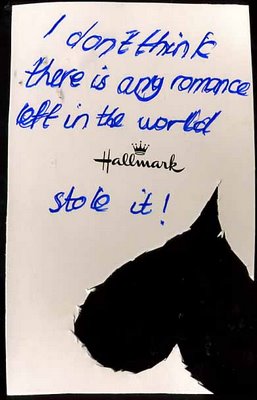 I don't think
there is any romance
left in the world
Hallmark
stole it!